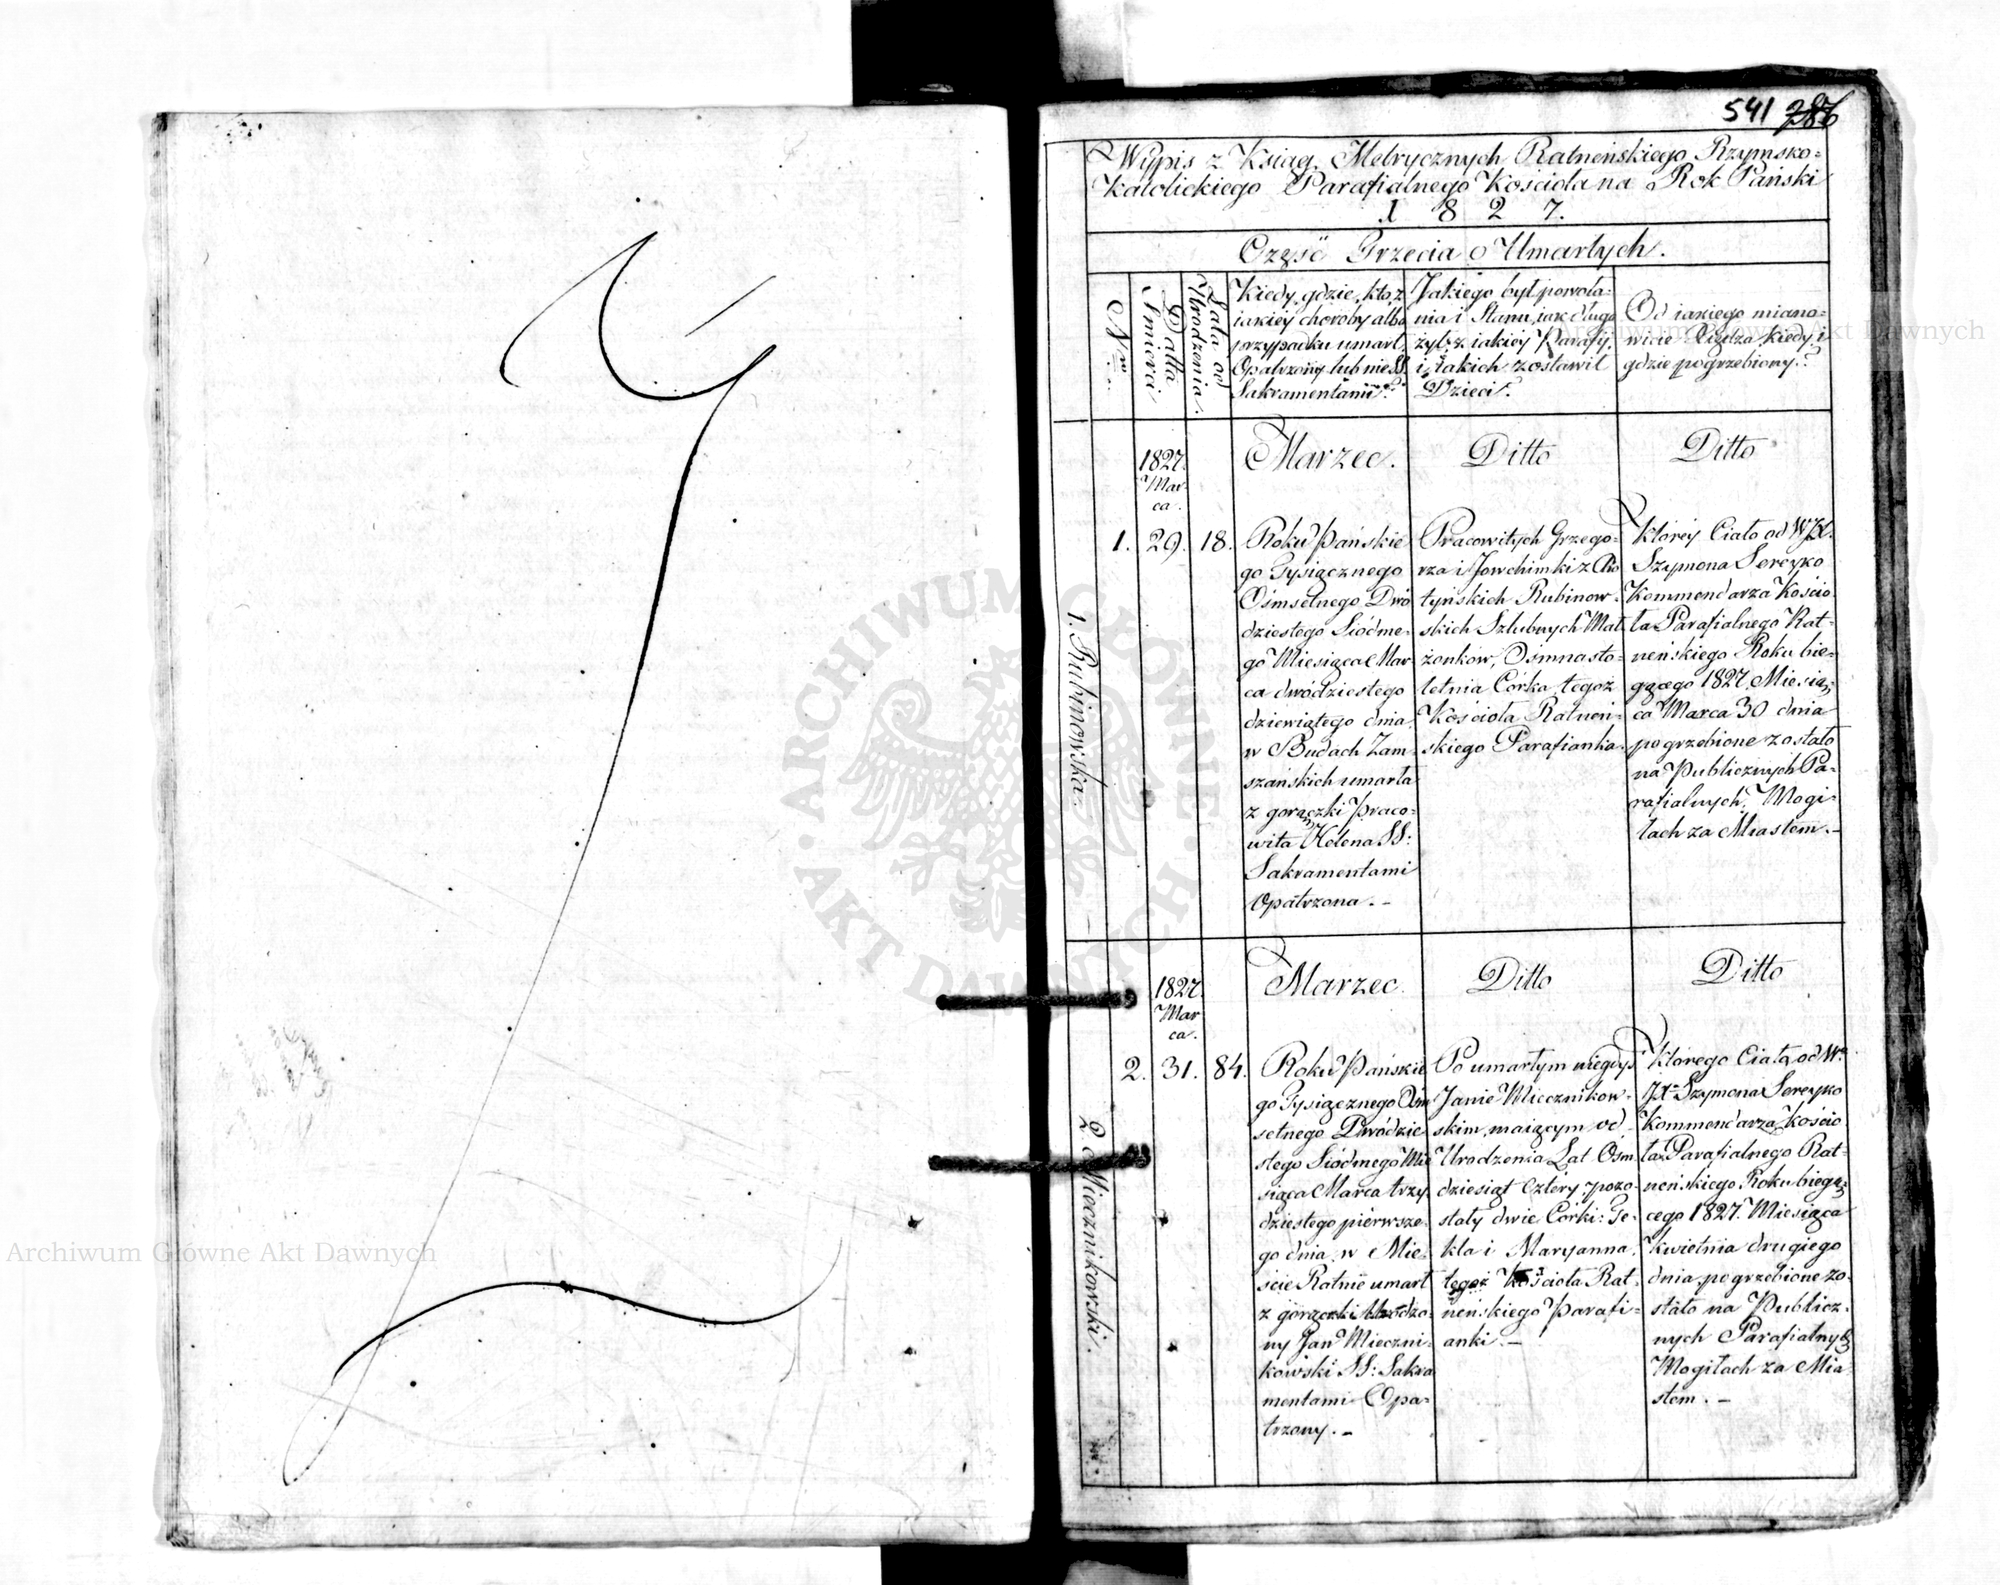 541 286
Wypis z Ksiąg Metrycznych Ratneńskiego Rzymsko=
Katolickiego Parafialnego Kościoła na Rok Pański
1 8 2 7.
Część Trzecia o Umarłych.
Nr.
Datta Smierci
Lata od Urodzenia.
Kiedy, gdzie, kto, z
iakiey choroby albo
przypadku umarł,
Opatrzony lub nie SS.
Sakramentami?
Jakiego był powoła=
nia i Stanu, iak długo
żył, z iakiey Parafij,
i iakich zostawił
Dzieci?
Od iakiego miano=
wicie Xiędza, kiedy i
gdzie pogrzebiony?
1827.
Mar=
ca.
Marzec.
Ditto
Ditto
1. Rubinowska.
1.
29.
18.
Roku Pańskie
go Tysiącznego
Ośmsetnego Dwó
dziestego Siódme=
go Miesiąca Mar
ca dwódziestego
dziewiątego dnia
w Budach Zam=
szańskich umarła
z gorączki Praco=
wita Helena SS:
Sakramentami
Opatrzona. –
Pracowitych Grzego=
rza i Jowchimki z Ro
tyńskich Rubinow=
skich Szlubnych Mał
żonków, Ośmnasto=
letnia Córka, tegoż
Kościoła Ratneń=
skiego Parafianka.
którey Ciało od WJX.
Szymona Sereyko
Kommendarza Kościo
ła Parafialnego Rat=
neńskiego Roku bie=
gącego 1827. Miesią=
ca Marca 30 dnia
pogrzebione zostało
na Publicznych Pa=
rafialnych Mogi=
łach za Miastem. –
1827.
Mar
ca.
Marzec.
Ditto
Ditto
2. Miecznikowski.
2.
31.
84.
Roku Pańskie
go Tysiącznego Ośm
setnego Dwódzie
stego Siódmego Mie
siąca Marca trzy
dziestego pierwsze=
go dnia, w Mie=
ście Ratnie umarł
z gorączki Urodzo=
ny Jan Mieczni=
kowski SS: Sakra
mentami Opa=
trzony. –
Po umarłym niegdyś
Janie Miecznikow=
skim, maiącym od
Urodzenia Lat Ośm
dziesiąt Cztéry: pozo=
stały dwie Córki: Te=
kla i Maryanna.
tegoż Kościoła Rat=
neńskiego Parafi=
anki. –
którego Ciało, od W.
JX. Szymona Sereyko
Kommendarza Kościo
ła Parafialnego Rat=
neńskiego, Roku biegą=
cego 1827. Miesiąca
Kwietnia drugiego
dnia, pogrzebione zo=
stało na Publicz=
nych Parafialnych
Mogiłach za Mia=
stem. –
Archiwum Główne Akt Dawnych
Archiwum Główne Akt Dawnych
ARCHIWUM GŁÓWNE · AKT DAWNYCH ·